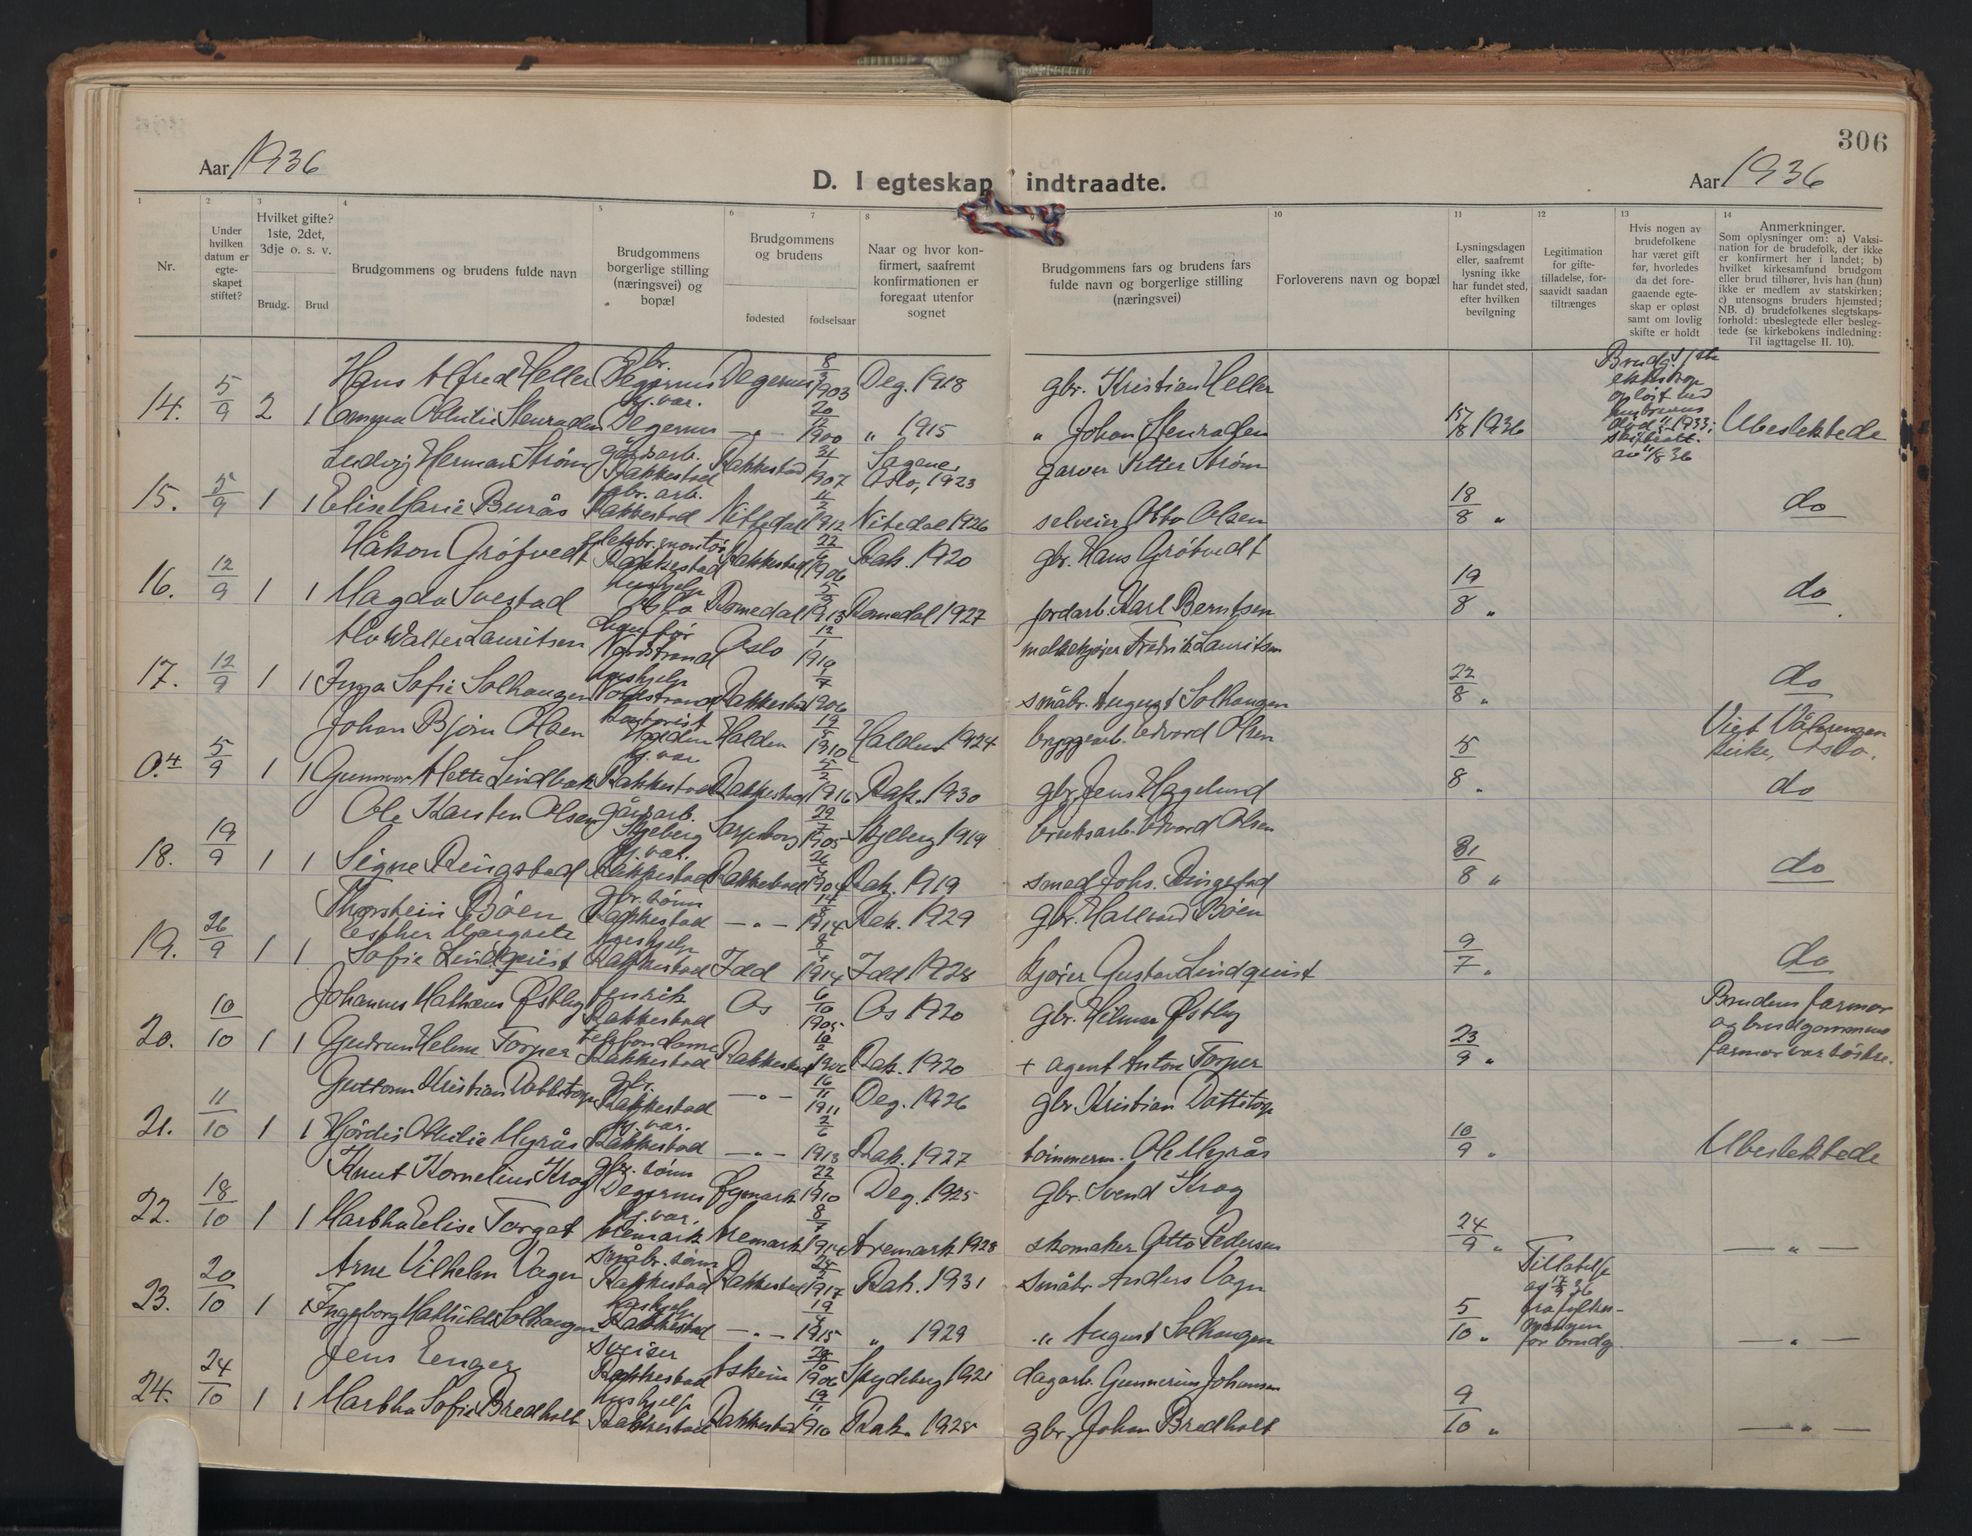 306
Aar 1936
D. I egteskap indtraadte.
Aar 1936
1 2 3 4 5 6 7 8 10 11 12 13 14
Nr.
Under hvilken datum er egte-skapet stiftet?
Hvilket gifte? 1ste, 2det, 3dje o. s. v.
Brudg. Brud
Brudgommens og brudens fulde navn
Brudgommens borgerlige stilling (næringsvei) og bopæl
Brudgommens og brudens
fødested fødselsaar
Naar og hvor kon-firmert, saafremt konfirmationen er foregaat utenfor sognet
Brudgommens fars og brudens fars fulde navn og borgerlige stilling (næringsvei)
Forloverens navn og bopæl
Lysningsdagen eller, saafremt lysning ikke har fundet sted, efter hvilken bevilgning
Legitimation for gifte-tilladelse, for-saavidt saadan tiltrænges
Hvis nogen av brudefolkene har været gift før, hvorledes da det fore-gaaende egte-skap er opløst samt om lovlig skifte er holdt
Anmerkninger.
Som oplysninger om: a) Vaksi-nation for de brudefolk, der ikke er konfirmert her i landet; b) hvilket kirkesamfund brudgom eller brud tilhører, hvis han (hun) ikke er medlem av statskirken; c) utensogns bruders hjemsted; NB. d) brudefolkenes slegtskaps-forhold: ubeslegtede eller besleg-tede (se kirkebokens indledning: Til iagttagelse II. 10).
Hans Alfred Heller gbr. Degernes Degernes 8/3 1903 Deg. 1918 gbr. Kristian Heller
14. 5/9 2 1 Emma Othilie Stenraden hj. var. Degernes -"- 1900 " 1915 " Johan Stenraden 15/8 1936 Ubeslektede
Ludvig Herman Strøm gårdsarb. Rakkestad Rakkestad 1907 Sagene, Oslo, 1923 garver Petter Strøm
15. 5/9 1 1 Elise Marie Burås Rakkestad Nittedal 1912 Nitedal 1926 selveier Otto Olsen 18/8 " do
Håkon Grøtvedt elektr. montør Rakkestad Rakkestad 1906 Rak. 1920 gbr. Hans Grøtvedt
16. 12/9 1 1 Magda Svestad hushjelp Oslo Romedal 1913 Romedal 1927 jordarb. Karl Berntsen 19/8 " do
Alv Walter Lauritsen Nordstrand Oslo 12/1 1910 melkekjører Fredrik Lauritsen
17. 12/9 1 1 Inga Sofie Solhaugen hushjelp Nordstrand Rakkestad 1906 småbr. August Solhaugen 22/8 " do
Johan Bjørn Olsen Halden Halden 1910 Halden 1924 bryggearb. Edvard Olsen Viet Vålerengen kirke, Oslo.
0.4 5/9 1 1 Gunnvor Alette Lindbæk hj. var Rakkestad Rakkestad 5/2 1916 Rak. 1930 gbr. Jens Haglund 8 " do
Ole Karsten Olsen gårdsarb. Skjeberg Sarpsborg 1905 Skjeberg 1919 bruksarb. Edvard Olsen
18. 19/9 1 1 Signe Ringstad hj. var. Rakkestad Rakkestad 1904 Rak. 1919 smed Johs. Ringstad 31/8 " do
Thorstein Bøen gbr. sønn Rakkestad -"- 1914 Rak. 1929 gbr. Hallvard Bøen
19. 26/9 1 1 Esther Margrete Sofie Lindqvist hushjelp Rakkestad Idd 1914 Idd 1928 kjører Gustav Lindquist 9/7 " do
Johannes Mathæus Østby Rakkestad Os 6/10 1905 Os 1920 gbr. Hilmar Østby
20. 10/10 1 1 Gudrun Helene Torper telefondame Rakkestad Rakkestad 1906 Rak. 1920 + agent Anton Torper 23/9 " Brudens farmor og brudgommens farmor var søstre.
Guttorm Kristian Dattetorp gbr. Rakkestad -"- 16/11 1911 Deg. 1926 gbr. Kristian Dattetorp
21. 11/10 1 1 Hjørdis Othilie Myrås hj. var. Rakkestad -"- 2/6 1913 Rak. 1927 tømmerm. Ole Myrås 10/9 " Ubeslektede
Knut Kornelius Krog gbr. sønn Degernes Øymark 1910 Deg. 1925 gbr. Svend Krog
22. 18/10 1 1 Martha Elise Torget hj. var. Aremark Aremark 8/7 1914 Aremark 1928 skomaker Otto Pedersen 24/9 " — " —
Arne Vilhelm Vagen småbr. sønn Rakkestad Rakkestad 1917 Rak. 1931 småbr. Anders Vagn
23. 20/10 1 1 Ingeborg Mathilde Solhaugen hushjelp Rakkestad -"- 1915 " 1929 " August Solhaugen 5/10 " Tillatelse av 36 fra fylkes-mannen for brudg. — " —
Jens Enger sveiser Rakkestad Askim 1906 Spydeberg 1921 dagarb. Gunnerius Johansen
24. 24/10 1 1 Martha Sofie Bredholt hushjelp Rakkestad Rakkestad 19/11 1910 Rak. 1925 gbr. Johan Bredholt 9/10 " — " —